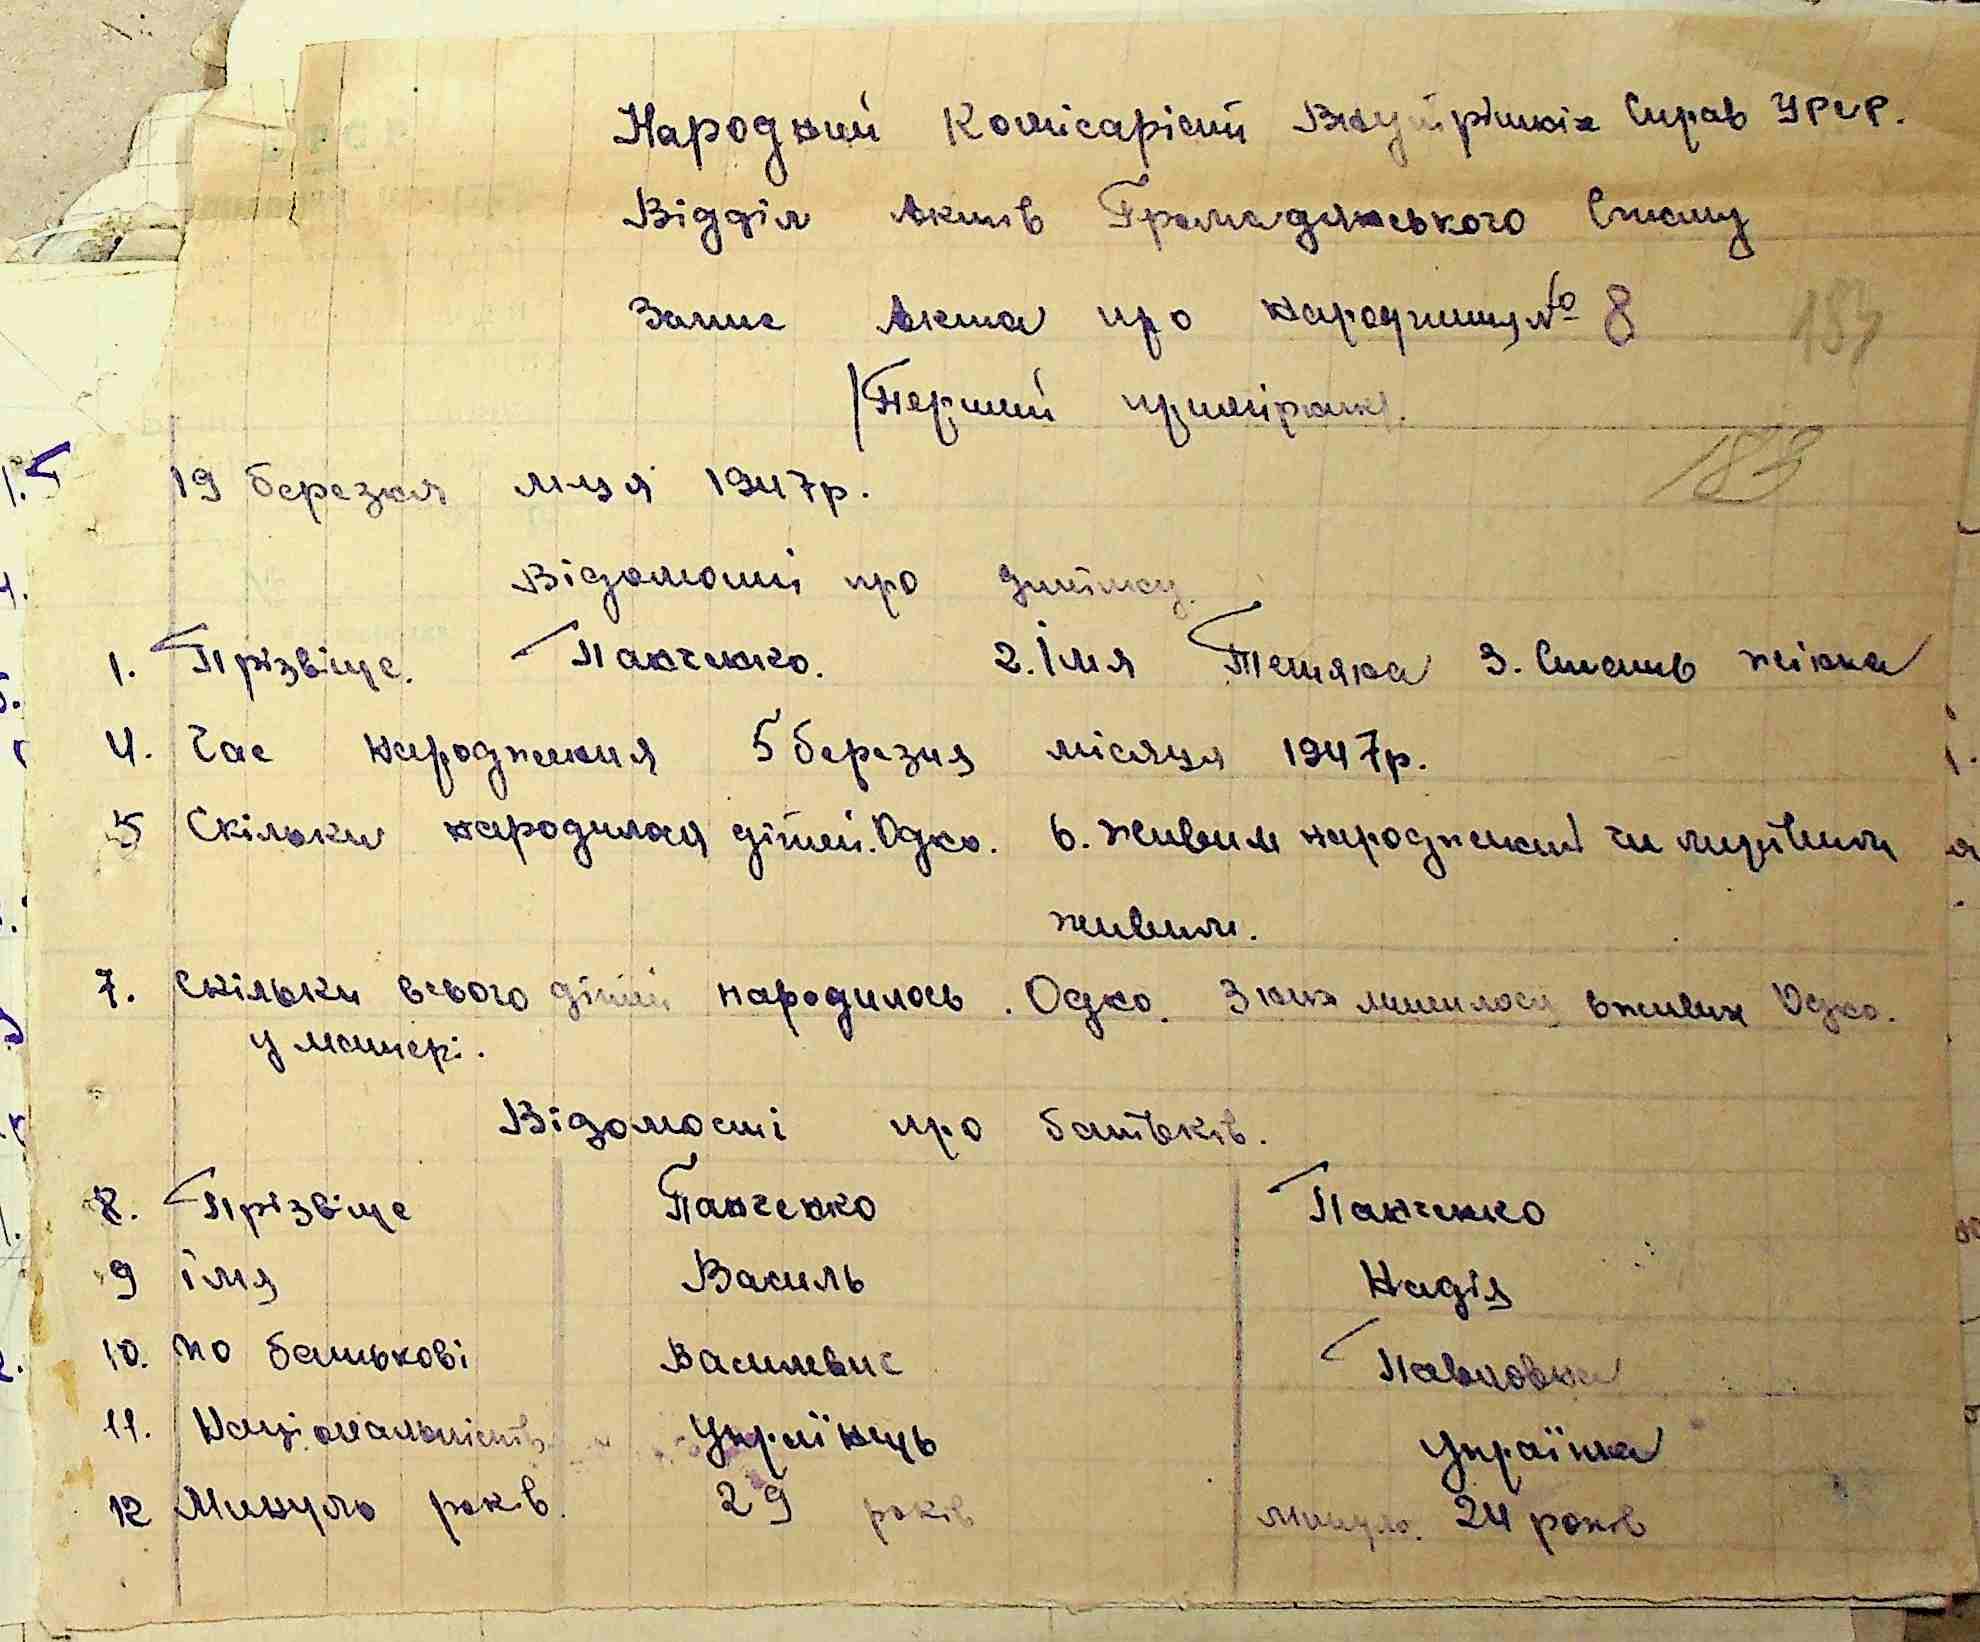 Народний Комісаріат Внутрішніх Справ УРСР.
Відділ Актів Громадянського Стану
Запис Акта про народження № 8
184
/Перший примірник/.
183
19 березня м-ця 1947р.
Відомості про дитину.
1. Прізвище. Панченко. 2. Імя Тетяна 3. Стать жіноча
4. Час народження 5 березня місяця 1947р.
5 Скільки народилося дітей. Одно. 6. Живим народжений чи мертвим
живим.
7. Скільки всього дітей народилось. Одно. З них лишилось в живих Одно.
у матері.
Відомості про батьків.
8. Прізвище Панченко Панченко
9 Імя Василь Надія
10. по батькові Василевич Павловна
11. Національність Українець Українка
12 Минуло років. 29 років минуло. 24 років